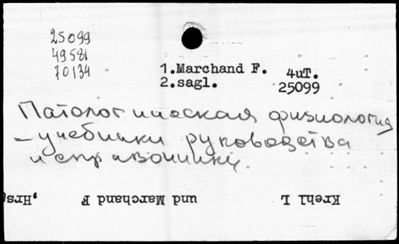 25099
49581
70134
1.Marchand F. 4uT.
2.sagl. 25099
Патологическая физиология
– учебники руководства
и справочники.
Krehl L und Marchand F Hrsg,